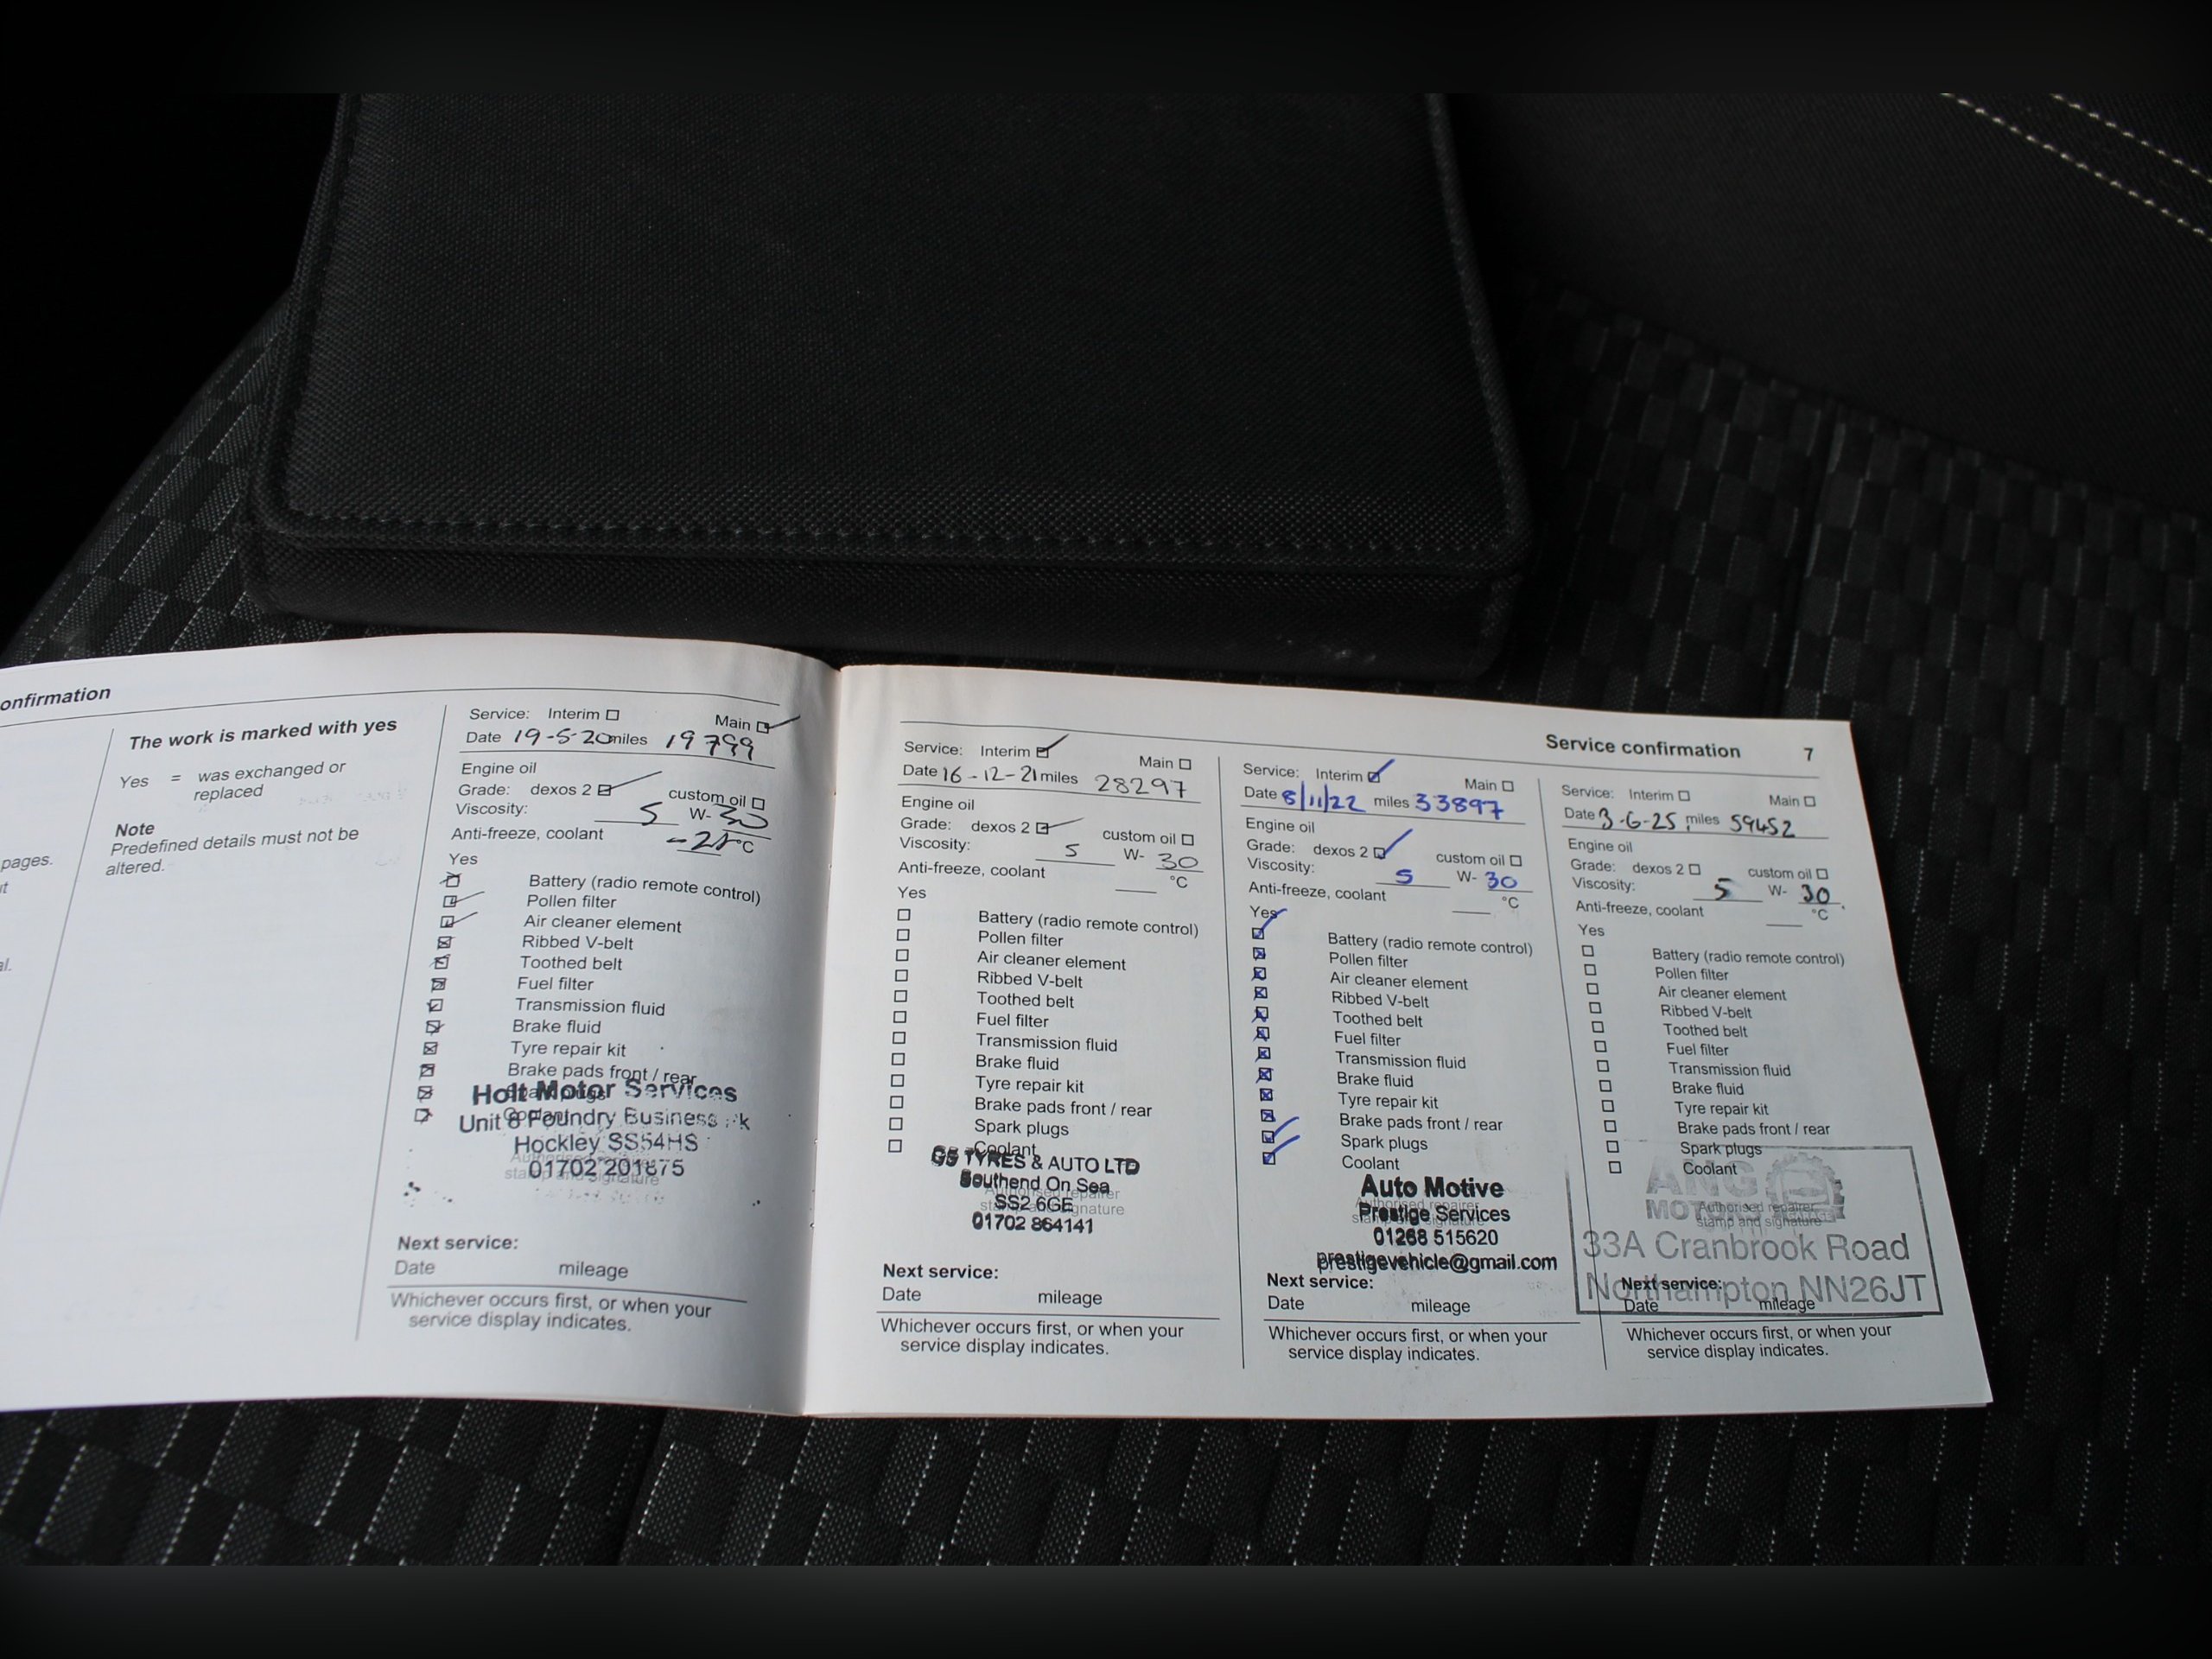 onfirmation
pages.
The work is marked with yes
Yes = was exchanged or
replaced
Note
Predefined details must not be
altered.
Service: Interim Main
Date 19-5-20 miles 19799
Engine oil
Grade: dexos 2 custom oil
Viscosity: 5 W- 30
Anti-freeze, coolant °C
Yes
Battery (radio remote control)
Pollen filter
Air cleaner element
Ribbed V-belt
Toothed belt
Fuel filter
Transmission fluid
Brake fluid
Tyre repair kit
Brake pads front / rear
Spark plugs
Coolant
Holt Motor Services
Unit 8 Foundry Business
Hockley SS54HS
01702 201875
Authorised
stamp and signature
Next service:
Date mileage
Whichever occurs first, or when your
service display indicates.
Service confirmation 7
Service: Interim Main
Date 16-12-21 miles 28297
Engine oil
Grade: dexos 2 custom oil
Viscosity: 5 W- 30
Anti-freeze, coolant °C
Yes
Battery (radio remote control)
Pollen filter
Air cleaner element
Ribbed V-belt
Toothed belt
Fuel filter
Transmission fluid
Brake fluid
Tyre repair kit
Brake pads front / rear
Spark plugs
Coolant
G5 TYRES & AUTO LTD
Southend On Sea
SS2 6GE
01702 864141
Authorised repairer
stamp and signature
Next service:
Date mileage
Whichever occurs first, or when your
service display indicates.
Service: Interim Main
Date 8/11/22 miles 33897
Engine oil
Grade: dexos 2 custom oil
Viscosity: 5 W- 30
Anti-freeze, coolant °C
Yes
Battery (radio remote control)
Pollen filter
Air cleaner element
Ribbed V-belt
Toothed belt
Fuel filter
Transmission fluid
Brake fluid
Tyre repair kit
Brake pads front / rear
Spark plugs
Coolant
Auto Motive
Prestige Services
01268 515620
prestigevehicle@gmail.com
Authorised repairer
stamp and signature
Next service:
Date mileage
Whichever occurs first, or when your
service display indicates.
Service: Interim Main
Date 3-6-25 miles 59452
Engine oil
Grade: dexos 2 custom oil
Viscosity: 5 W- 30
Anti-freeze, coolant °C
Yes
Battery (radio remote control)
Pollen filter
Air cleaner element
Ribbed V-belt
Toothed belt
Fuel filter
Transmission fluid
Brake fluid
Tyre repair kit
Brake pads front / rear
Spark plugs
Coolant
ANG
Authorised repairer
stamp and signature
33A Cranbrook Road
Northampton NN26JT
Next service:
Date mileage
Whichever occurs first, or when your
service display indicates.